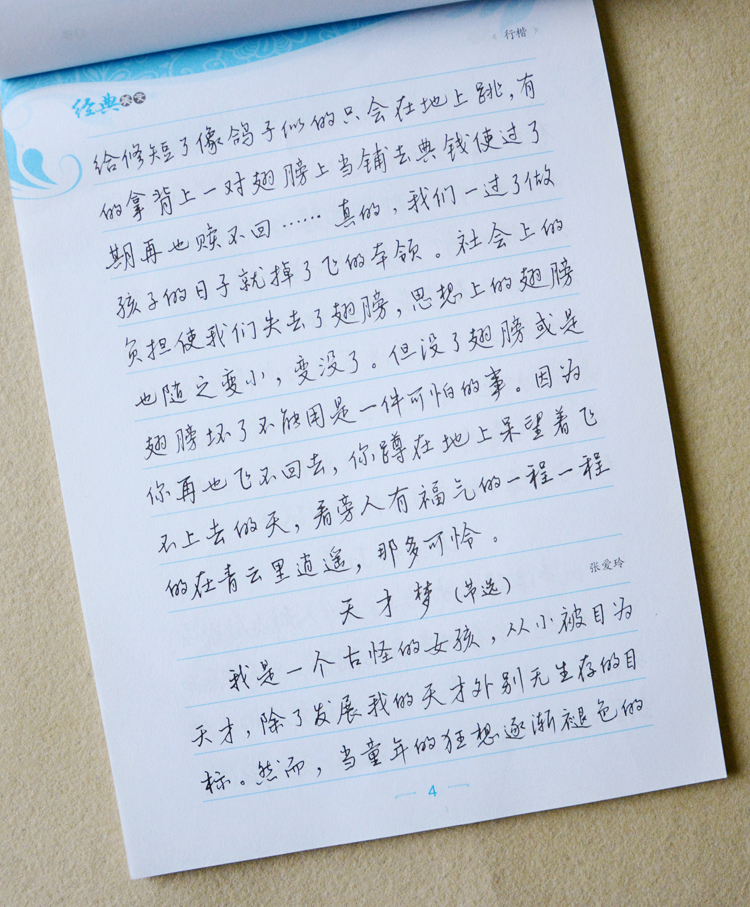 行楷
经典美文
给修短了像鸽子似的只会在地上跳，有
的拿背上一对翅膀上当铺去典钱使过了
期再也赎不回……真的，我们一过了做
孩子的日子就掉了飞的本领。社会上的
负担使我们失去了翅膀，思想上的翅膀
也随之变小，变没了。但没了翅膀或是
翅膀坏了不能用是一件可怕的事。因为
你再也飞不回去，你蹲在地上呆望着飞
不上去的天，看旁人有福气的一程一程
的在青云里逍遥，那多可怜。
天才梦（节选）
张爱玲
我是一个古怪的女孩，从小被目为
天才，除了发展我的天才外别无生存的目
标。然而，当童年的狂想逐渐褪色的
4